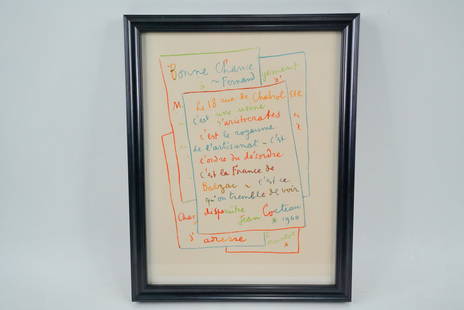 Bonne Chance
Fernand
M.
Le 18 rue de Chabrol
c'est une usine
d'aristocrates
c'est le royaume
de l'artisanat - c'est
l'ordre du désordre
c'est la France de
Balzac - c'est ce
qu'on tremble de voir
disparaître
Jean Cocteau
* 1960
Cha
s' adresse